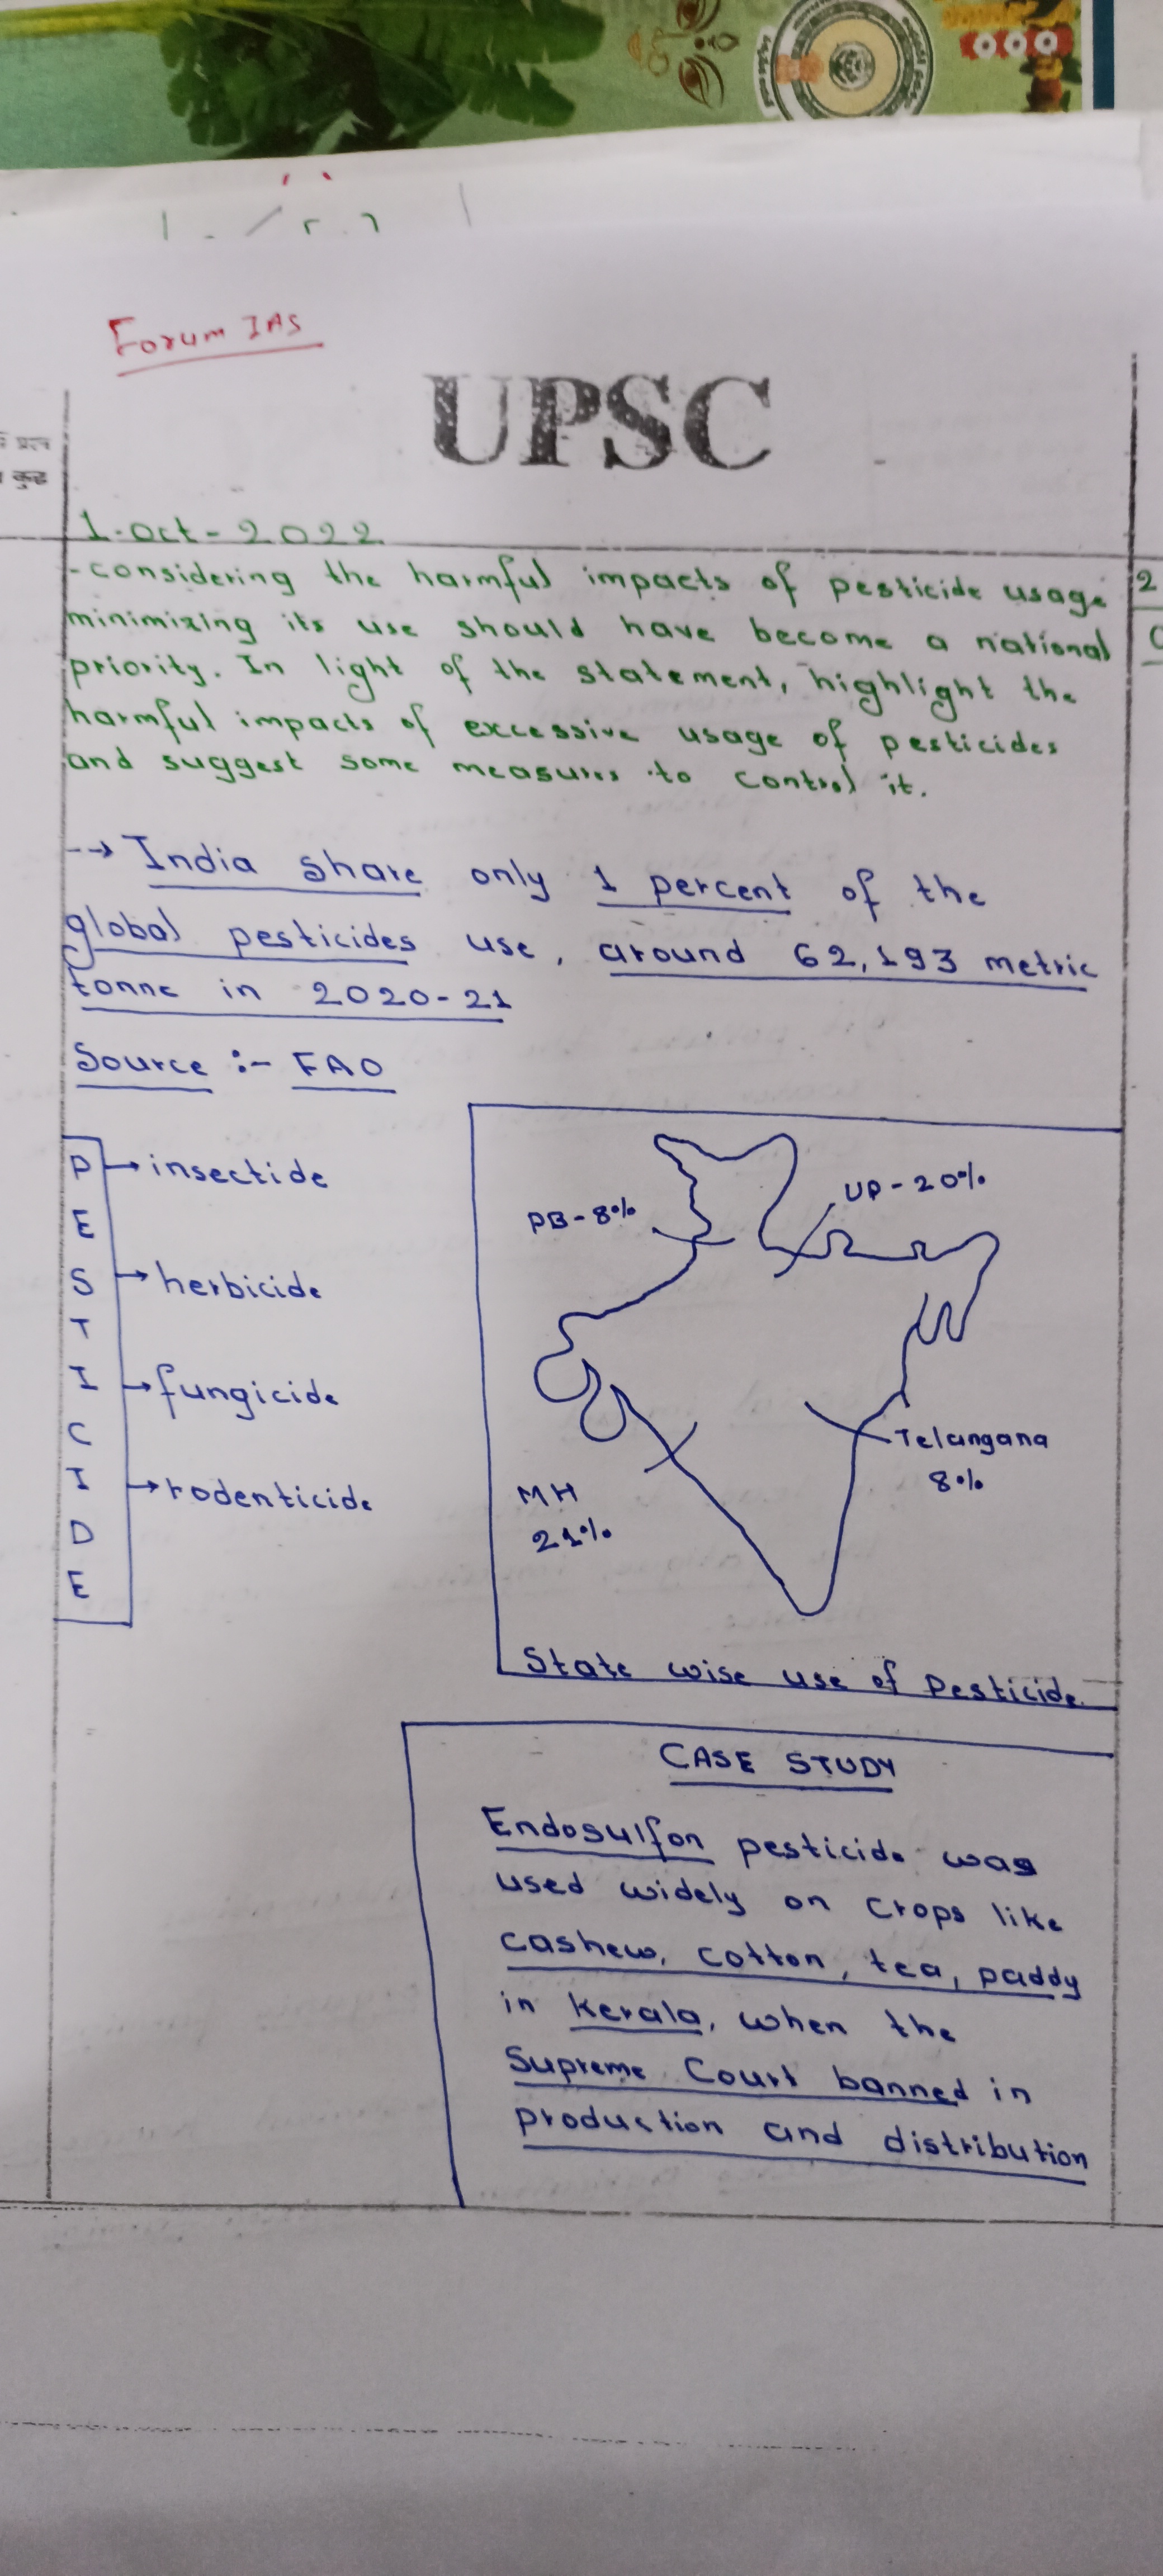 Forum IAS
UPSC
प्रश्न
कुछ
1-oct-2022
-considering the harmful impacts of pesticide usage
minimizing its use should have become a national
priority. In light of the statement, highlight the
harmful impacts of excessive usage of pesticides
and suggest some measures to control it.
2
--> India share only 1 percent of the
global pesticides use, around 62,193 metric
tonne in 2020-21
Source :- FAO
PESTICIDE
→insectide
→herbicide
→fungicide
→rodenticide
PB-8%
UP-20%
Telangana
8%
MH
21%
State wise use of Pesticide
CASE STUDY
Endosulfon pesticide was
used widely on crops like
cashew, cotton, tea, paddy
in kerala, when the
Supreme Court banned in
production and distribution